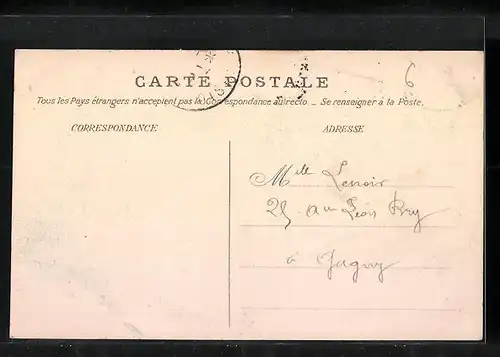 6
CARTE POSTALE
Tous les Pays étrangers n'acceptent pas la Correspondance au recto _ Se renseigner à la Poste.
CORRESPONDANCE
ADRESSE
Mlle Lenoir
25
à